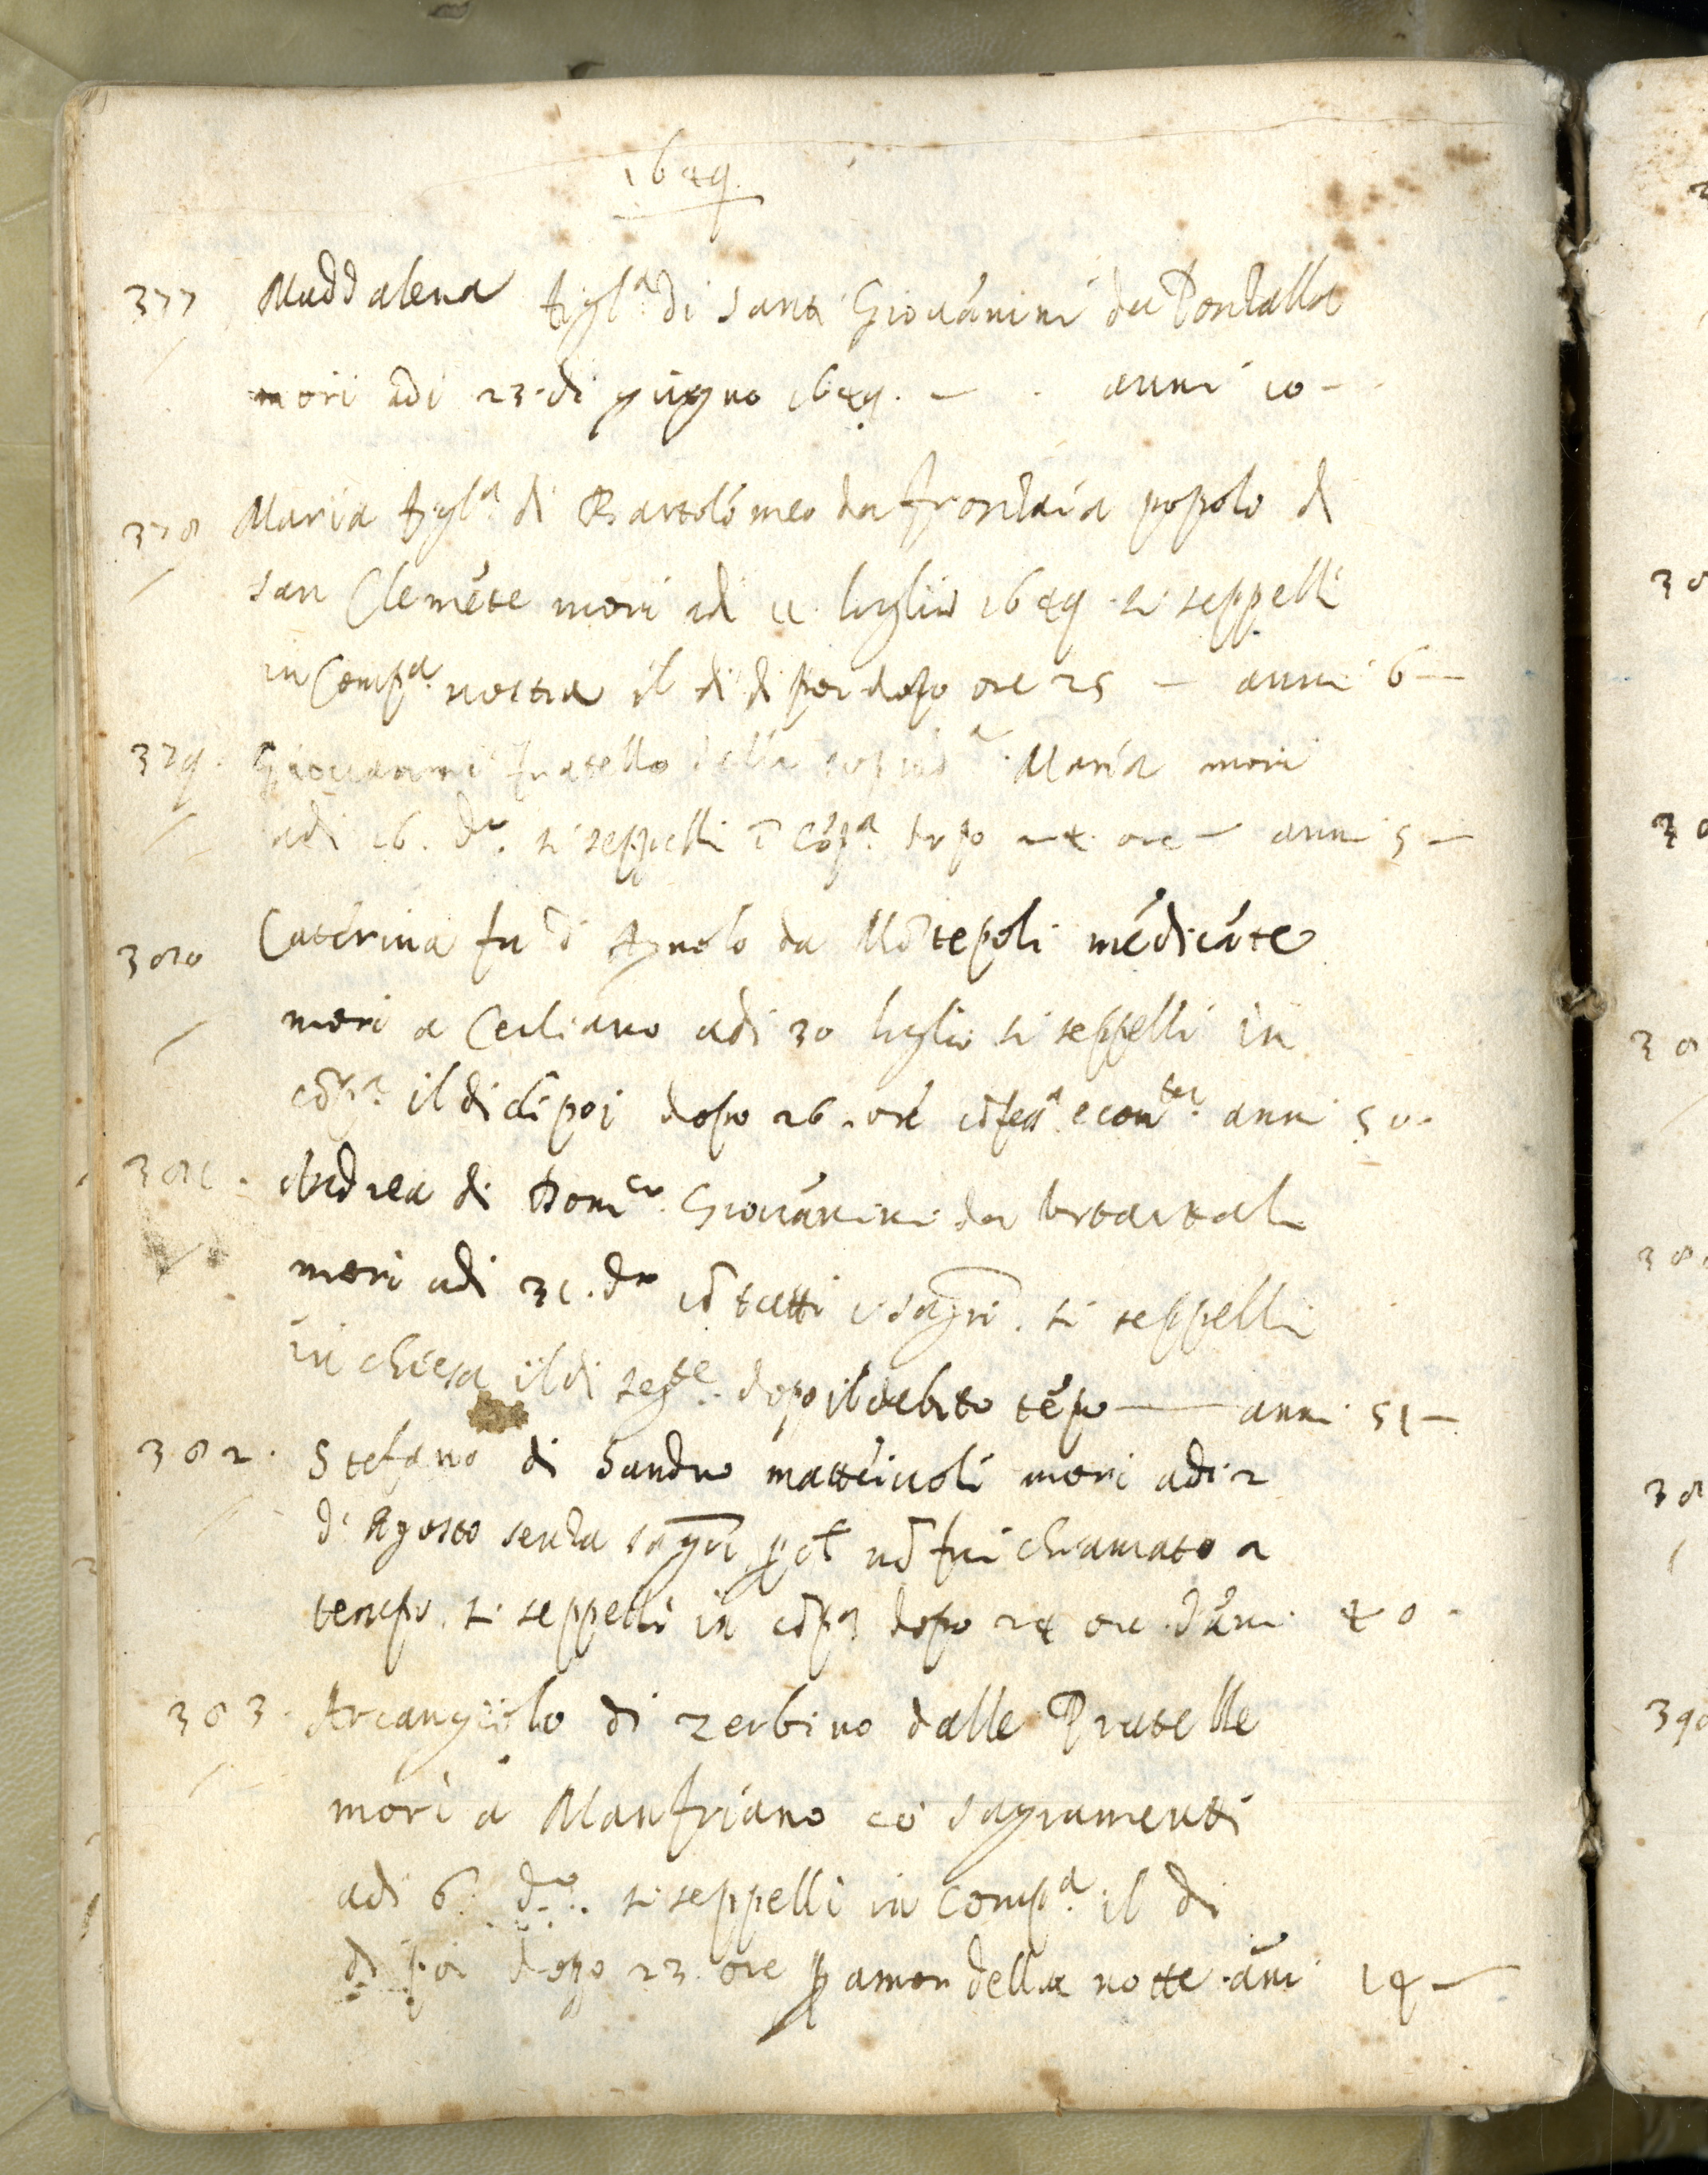 1649
377 Maddalena figl.a di Santi Giovánini da Pontalla
mori adi 23. di giugno 1649. — anni 10 -
378 Maria figl.a di Bartolómeo da frontaia popolo di
san Cleméte mori adi 11 luglio 1649 si seppelli
in Comp.a nostra il di di poi dopo ore 25 — anni 6 —
379. Giovanni fratello della sopad.a Maria mori
adi 16. d.o si seppelli ī Cóp.a dopo 24. ore — anni 5 —
380 Caterina fu di Agnolo da Mōtepoli médicáte
mori a Ceciliano adi 30 luglio si seppelli in
cōp.a il di di poi dopo 26. ore cōfes.a e com.ta anni 50.
381. Andrea di Dom.co Giovánini da
mori adi 31. d.o cō tutti i sagri. si seppelli
in chiesa il di seg.te dopo il debito tépo — anni 51 —
382. Stefano di Sandro matteiuoli mori adi 2
di Agosto senza sagri p̱ch̄ nō fui chiamato a
tempo. si seppelli in cōp.a dopo 24 ore d'áni 40.
383. Arcangiolo di Zerbino dalle Pratelle
mori a Manfriano có sagramenti
adi 6. d.o. si seppelli in Comp.a il di
di poi dopo 23 ore p̱ amor della notte áni 14 —